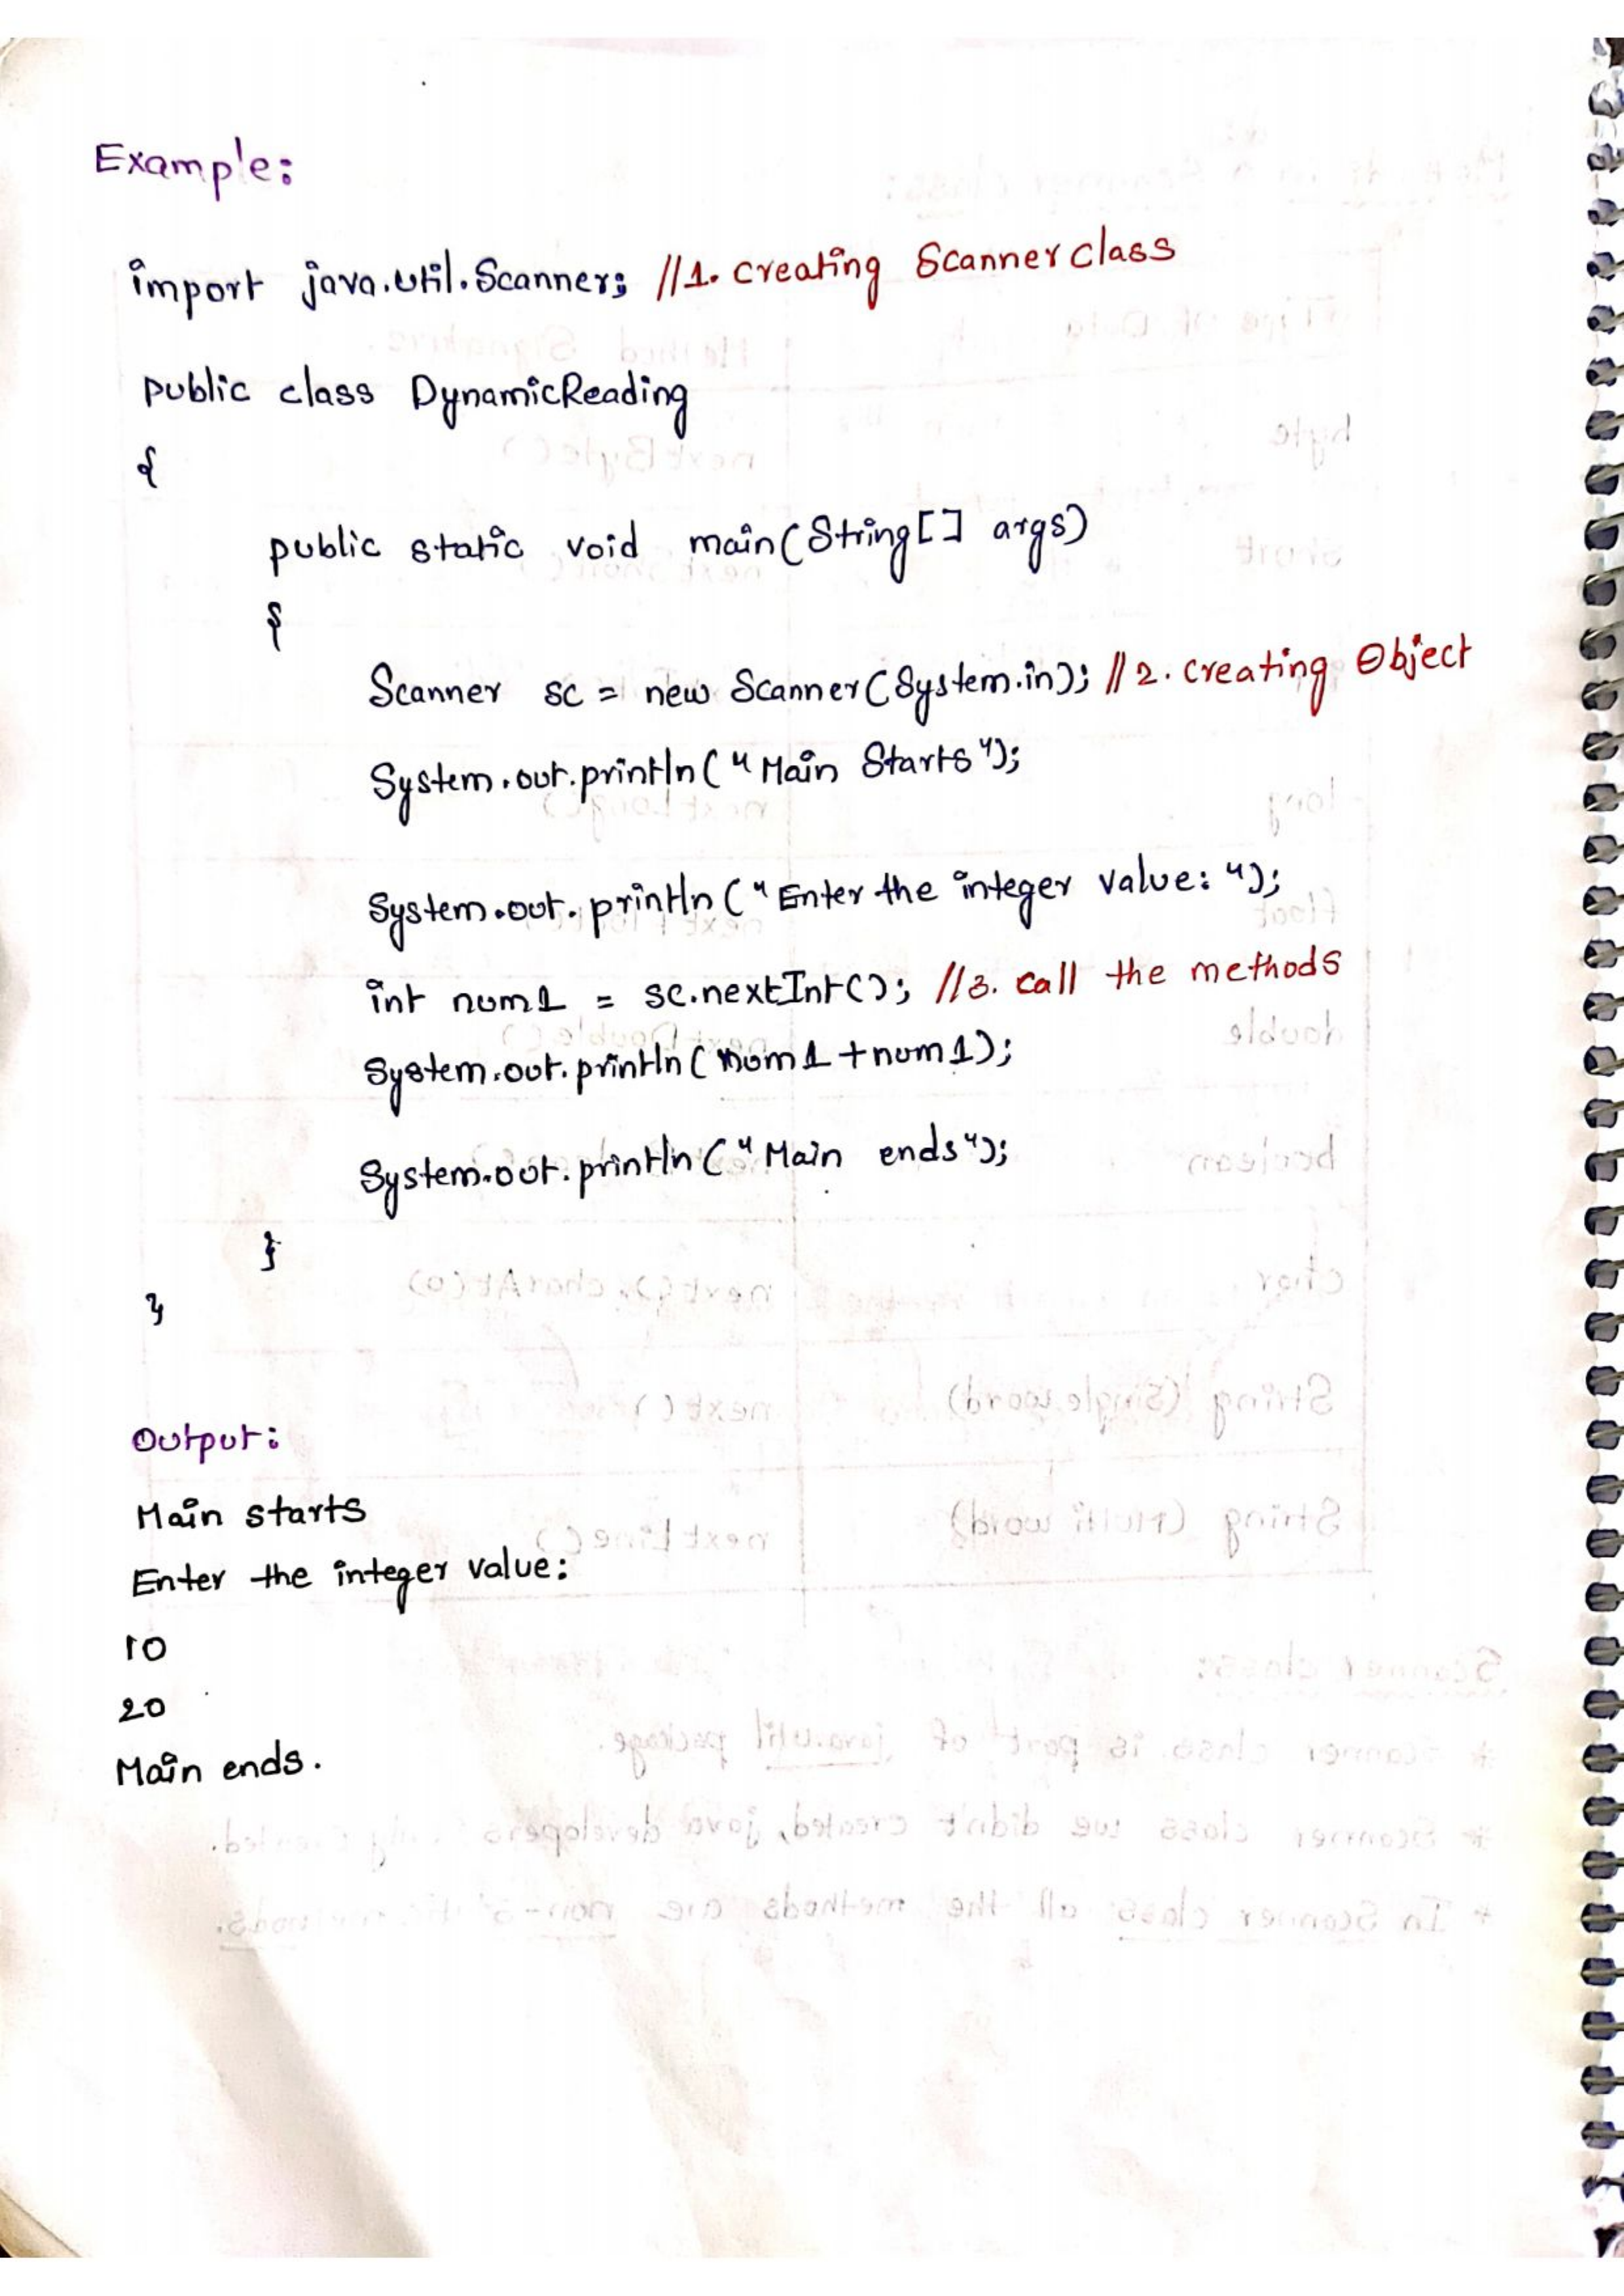 Example:
import java.util.Scanner; //1. creating Scanner class
public class DynamicReading
{
public static void main(String[] args)
{
Scanner sc = new Scanner(System.in); //2. creating Object
System.out.println("Main Starts");
System.out.println("Enter the integer value: ");
int num1 = sc.nextInt(); //3. call the methods
System.out.println(num1+num1);
System.out.println("Main ends");
}
}
Output:
Main starts
Enter the integer value:
10
20
Main ends.